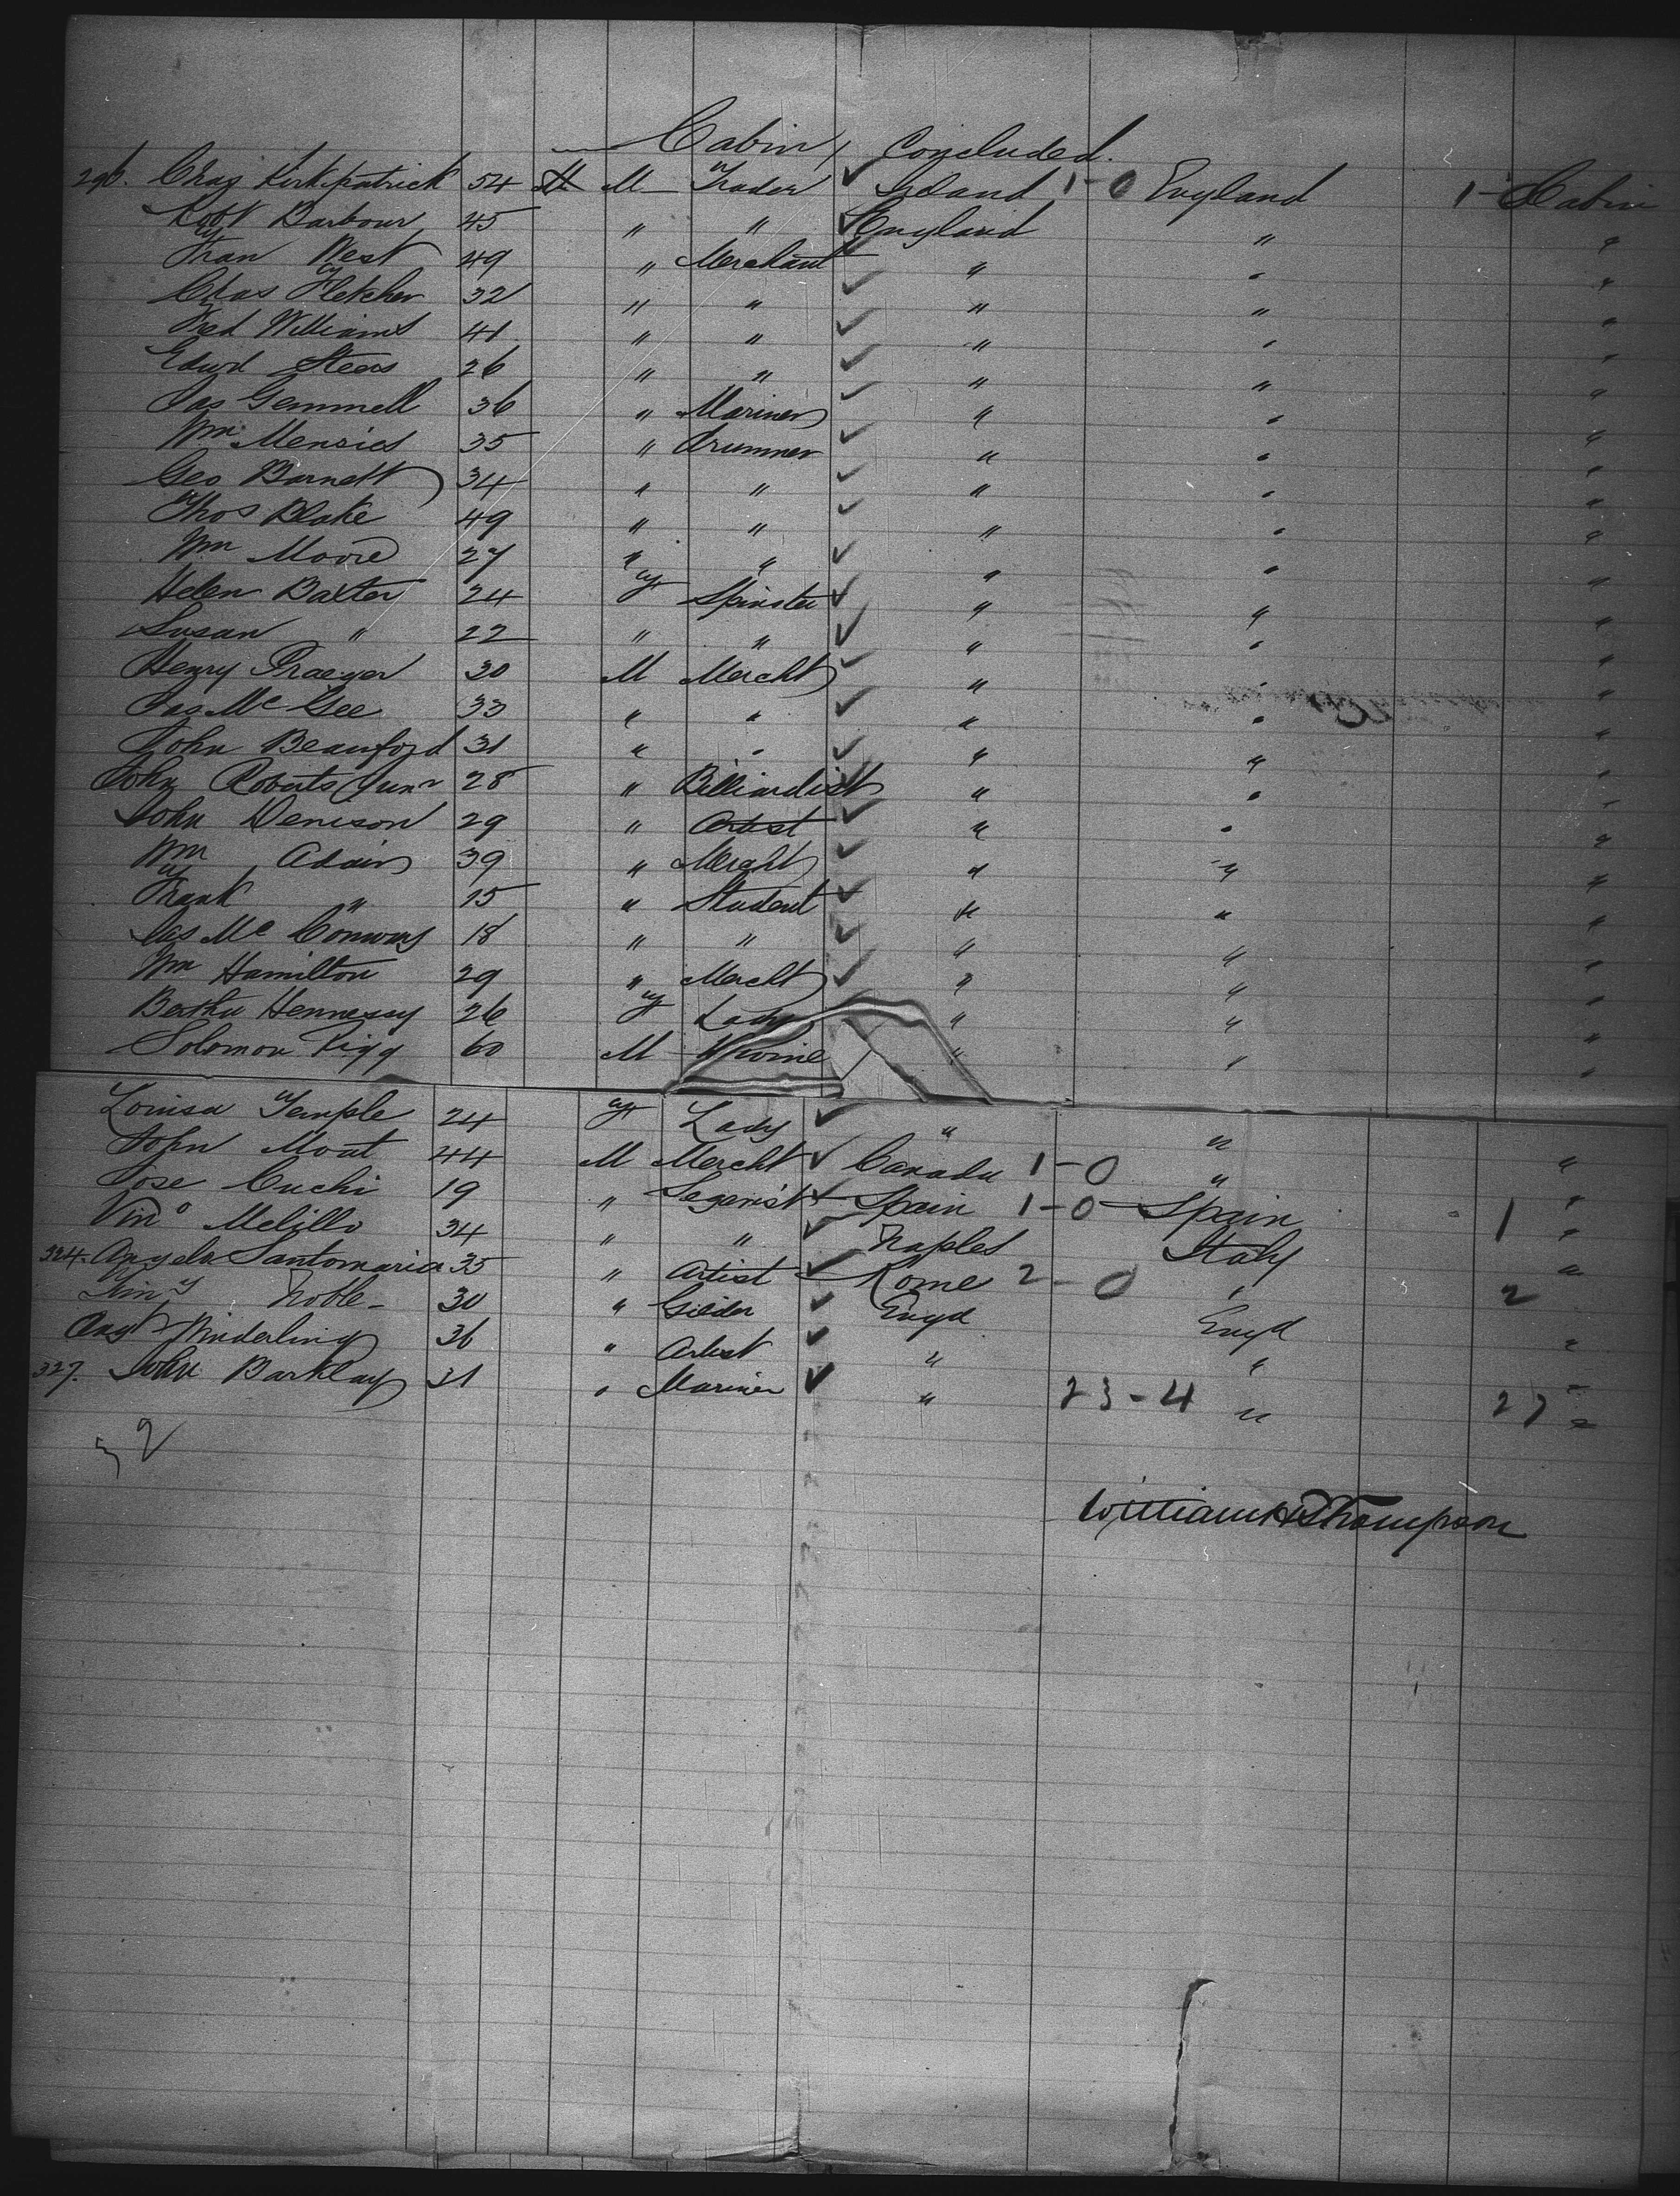 Cabin, Concluded.
296. Chas Kirkpatrick 54 M M Trader Ireland 1-0 England 1- Cabin
Robt Barbour 45 " " England " "
Fran West 49 " Merchant " " "
Chas Fletcher 32 " " " " "
Fred Williams 41 " " " " "
Edwd Steers 26 " " " " "
Jas Gemmell 36 " Mariner " " "
Wm Menzies 35 " Drummer " " "
Geo Barnett 34 " " " " "
Thos Blake 49 " " " " "
Wm Moore 27 " " " " "
Helen Baxter 24 F Spinster " " "
Susan " 22 " " " " "
Henry Praeger 30 M Mercht " " "
Jas Mc Gee 33 " " " " "
John Beauford 31 " " " " "
John Roberts Junr 28 " Billiardist " " "
John Denison 29 " Artist " " "
Wm Adair 39 " Mercht " " "
Frank " 15 " Student " " "
Jas Mc Conway 18 " " " " "
Wm Hamilton 29 " Mercht " " "
Bertha Hennessy 26 F Lady " " "
Solomon Rigg 60 M Divine " " "
Louisa Temple 24 F Lady " " "
John Moat 44 M Mercht Canada 1-0 " "
Jose Cuchi 19 " Segarist Spain 1-0 Spain 1 "
Vino Melillo 34 " " Naples Italy "
324. Angelo Santomaria 35 " Artist Rome 2-0 " 2
Noble 30 " Gilder Engd Engd "
Augt Winderling 36 " Artist " " "
327. John Barklay 31 " Mariner " 23-4 " 27 "
32
William H Thompson